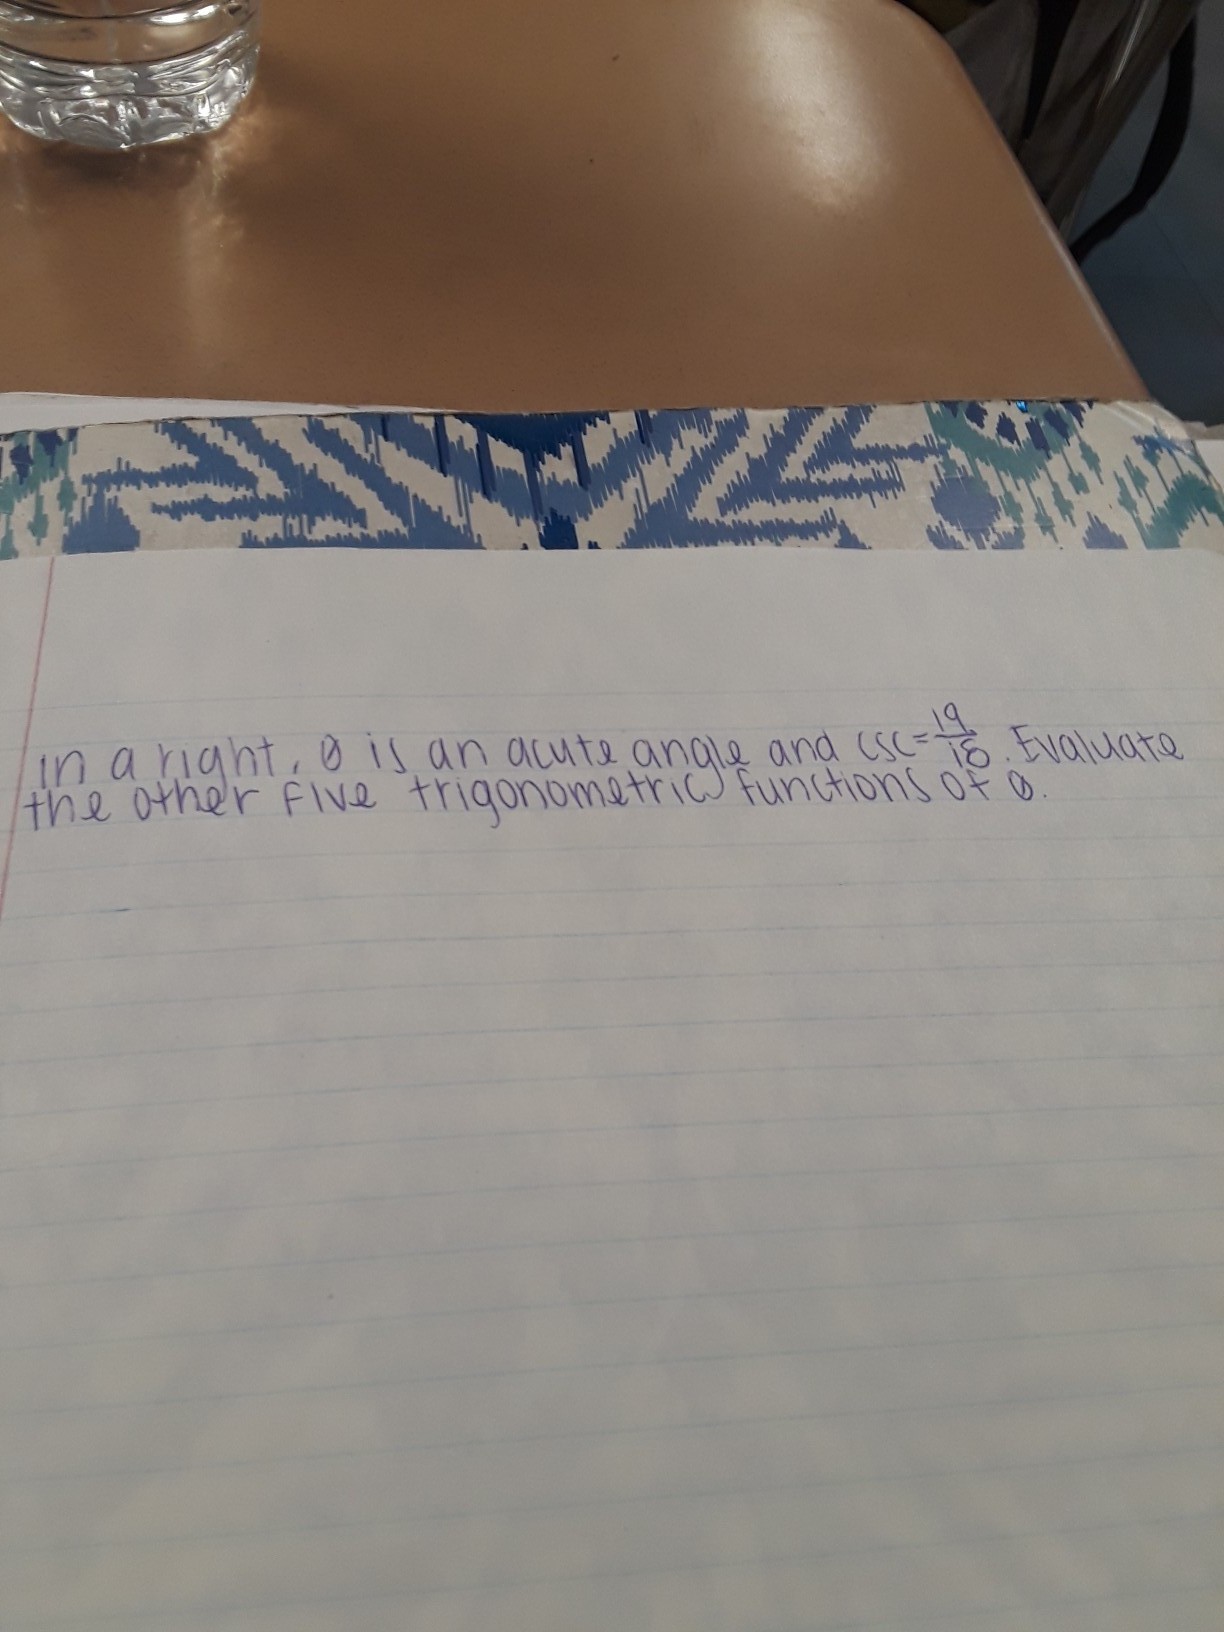 in a right, θ is an acute angle and csc=19/18. Evaluate
the other five trigonometric functions of θ.